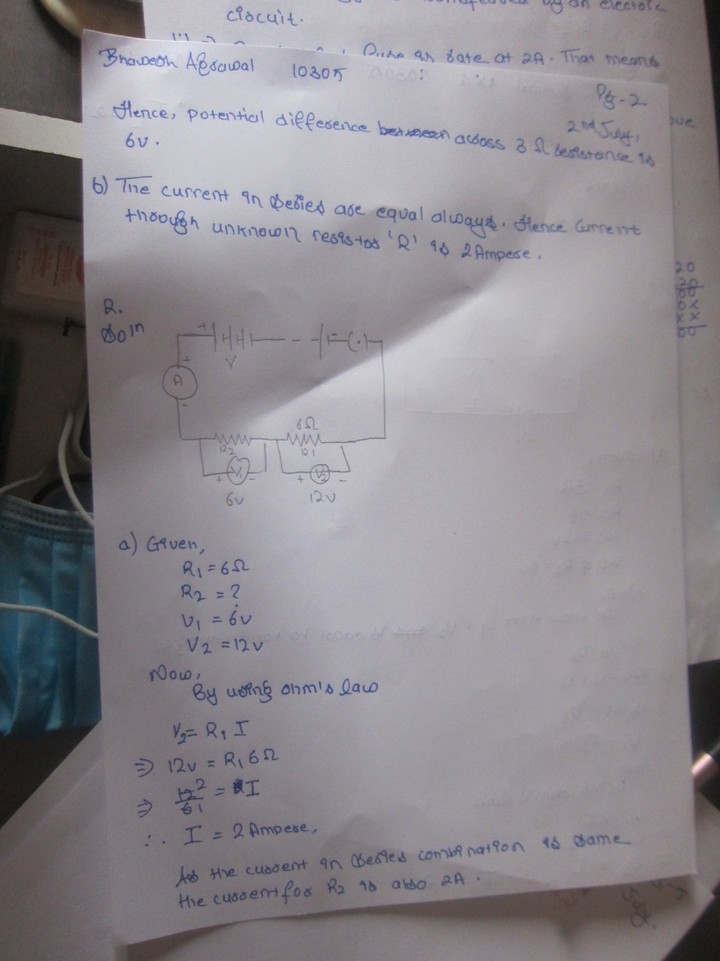 circuit.
rate at 2A. That means
Bhawesh Agrawal 10305
Pg-2
2nd July,
Hence, potential difference across 3 Ω resistance is
6v.
b) The current in series are equal always. Hence current
through unknown resistor 'R' is 2 Ampere.
2.
Soln
+ - (.)
V
+
A
-
6Ω
R2 R1
+ V1 - + V2 -
6v 12v
a) Given,
R1 = 6Ω
R2 = ?
V1 = 6v
V2 = 12v
Now,
By using ohm's law
V2 = R1 I
⇒ 12v = R1 6Ω
⇒ 12 2 / 6 1 = I
∴ I = 2 Ampere,
As the current in series combination is same
the current for R2 is also 2A.